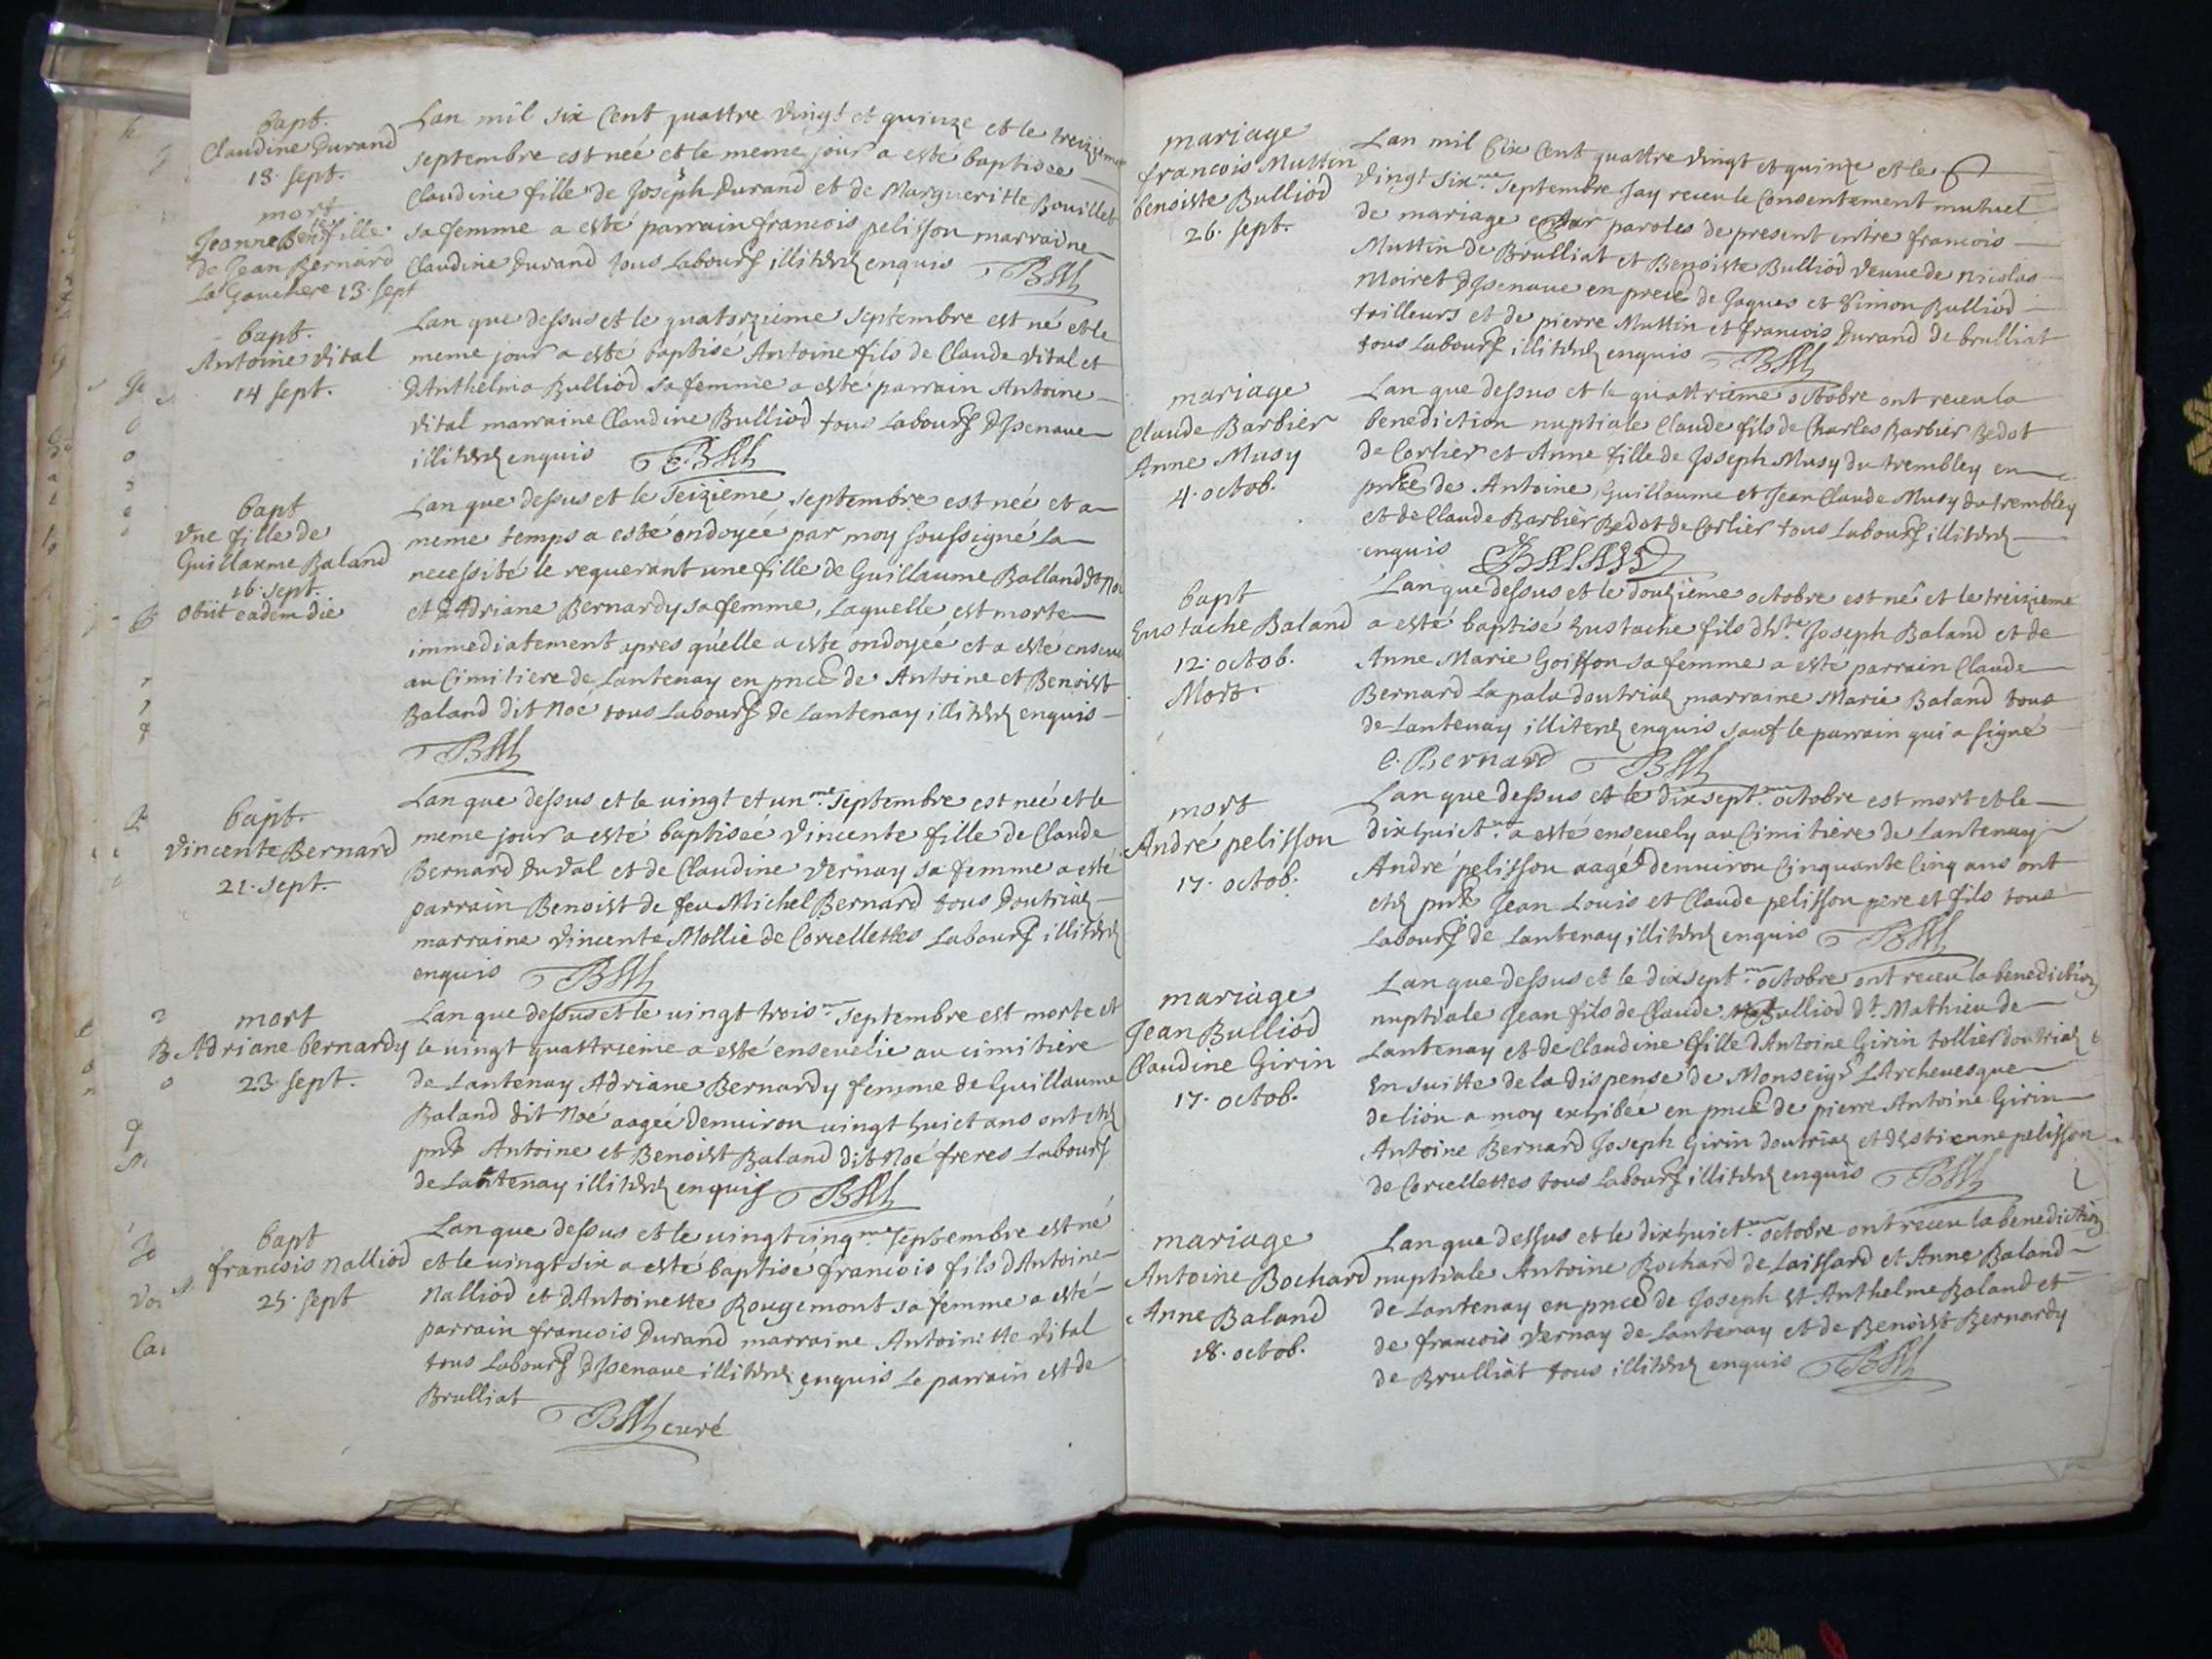 bapt.
Claudine Durand
13. sept.
mort
Jeanne Ber fille
de Jean Bernard
La Gouchere 13. sept
Lan mil six Cent quattre vingt et quinze et le treizieme
septembre est neé et le meme jour a esté baptiseé
Claudine fille de Joseph Durand et de Margueritte Bouillet
sa femme a esté parrain francois pelisson marraine
Claudine Durand tous Labours illiteres enquis
bapt.
Antoine Vital
14 sept.
Lan que dessus et le quatorzieme septembre est né et le
meme jour a esté baptisé Antoine fils de Claude Vital et
dAnthelma Bulliod sa femme a esté parrain Antoine
Vital marraine Claudine Bulliod tous Labours dIsenaue
illiteres enquis
bapt
Vne fille de
Guillaume Baland
16. sept.
obiit eadem die
Lan que dessus et le seizieme septembre est neé et a
meme temps a esté ondoyeé par moy soussigné la
necessité le requerant une fille de Guillaume Balland dt Noé
et dAdriane Bernardy sa femme, Laquelle est morte
immediatement apres qu'elle a esté ondoyeé et a esté
au Cimitiere de Lantenay en pnce de Antoine et Benoist
Baland dit Noe tous Labours de Lantenay illiteres enquis
bapt.
Vincente Bernard
21. sept.
Lan que dessus et le vingt et unme septembre est neé et le
meme jour a esté baptiseé Vincente fille de Claude
Bernard du Val et de Claudine Vernay sa femme a esté
parrain Benoist de feu Michel Bernard tous doutriaz
marraine Vincente Mollie de Corcellettes Labours illiteres
enquis
mort
Adriane bernardy
23. sept.
Lan que dessus et le vingt troisme septembre est morte et
le vingt quattrieme a esté enseuelie au cimitiere
de Lantenay Adriane Bernardy femme de Guillaume
Baland dit Noé aageé denuiron vingt huict ans ont etez
pnts Antoine et Benoist Baland dit Noé freres Labours
de Lantenay illiteres enquis
bapt
francois Nalliod
25. sept
Lan que dessus et le vingt cinqme septembre est né
et le vingt six a esté baptisé francois fils dAntoine
Nalliod et dAntoinette Rougemont sa femme a esté
parrain francois Durand marraine Antoinette Vital
tous Labours dIsenaue illiteres enquis Le parrain est de
Brulliat
curé
mariage
francois Muttin
benoiste Bulliod
26. sept.
Lan mil Six Cent quattre vingt et quinze et le
vingt sixme septembre Jay receu le Consentement mutuel
de mariage par paroles de present entre francois
Muttin de Brulliat et Benoiste Bulliod veuue de Nicolas
Moiret dIsenaue en prece de Jaques et Simon Bulliod
tailleurs et de pierre Muttin et francois Durand de brulliat
tous Labours illiteres enquis
mariage
Claude Barbier
Anne Musy
4. octob.
Lan que dessus et le quattrieme octobre ont receu la
benediction nuptiale Claude fils de Charles Barbier Bedot
de Corlier et Anne fille de Joseph Musy du trembley en
pnce de Antoine, Guillaume et Jean Claude Musy du trembley
et de Claude Barbier Bedot de Corlier tous Labours illiteres
enquis
bapt
Eustache Baland
12. octob.
Mort.
Lan que dessus et le douzieme octobre est né et le treizieme
a esté baptisé Eustache fils dhte Joseph Baland et de
Anne Marie Goiffon sa femme a esté parrain Claude
Bernard La pala doutriaz marraine Marie Baland tous
de Lantenay illiteres enquis sauf le parrain qui a signé
C. Bernard
mort
André pelisson
17. octob.
Lan que dessus et le dix septme octobre est mort et le
dix huictme a esté enseuely au Cimitiere de Lantenay
André pelisson aagé denuiron Cinquante Cinq ans ont
etez pnts Jean Louis et Claude pelisson pere et fils tous
Labours de Lantenay illiteres enquis
mariage
Jean Bulliod
Claudine Girin
17. octob.
Lan que dessus et le dix septme octobre ont receu la benediction
nuptiale Jean fils de Claude Bulliod dt Mathieu de
Lantenay et de Claudine fille dAntoine Girin tollier doutriaz
En suitte de la dispense de Monseigr LArcheuesque
de lion a moy exhibeé en pnce de pierre Antoine Girin
Antoine Bernard Joseph Girin doutriaz et dEstienne pelisson
de Corcellettes tous Labours illiteres enquis
mariage
Antoine Bochard
Anne Baland
18. octob.
Lan que dessus et le dix huictme octobre ont receu la benediction
nuptiale Antoine Bochard de Laissard et Anne Baland
de Lantenay en pnce de Joseph et Anthelme Baland et
de francois Vernay de Lantenay et de Benoist Bernardy
de Brulliat tous illiteres enquis